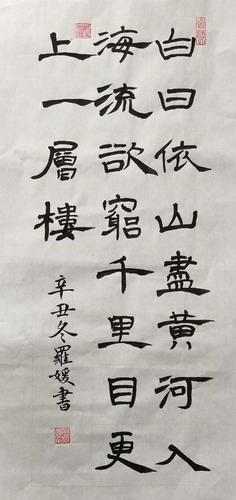 白日依山盡黃河入
海流欲窮千里目更
上一層樓
辛丑冬羅媛書